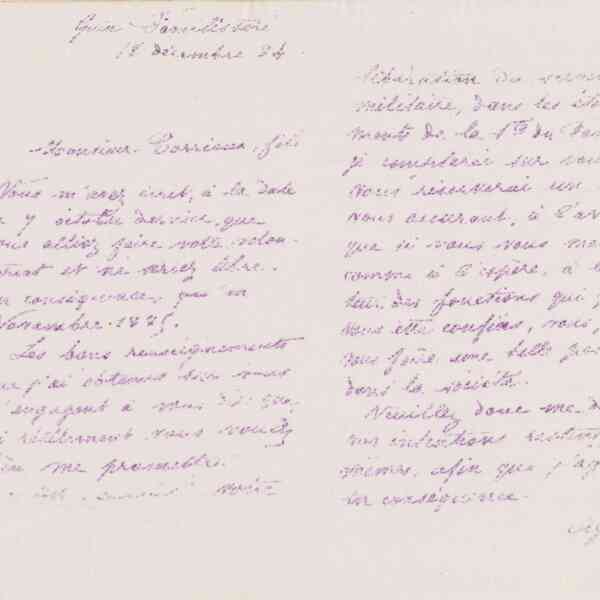 Guise Familistère
12 décembre 84.
Monsieur Corrieux, fils
Vous m'avez écrit, à la date
7 octobre dernier, que
vous alliez faire votre volon-
tariat et ne seriez libre,
en conséquence, qu'en
Novembre 1885.
Les bons renseignements
que j'ai obtenus sur vous
m'engagent à vous dire que,
si réellement vous voulez
bien me promettre
votre
libération du service
militaire, dans les
ments de la Sté du Fam
je compterai sur vous
vous réserverai un
vous assurant, à l'av
que si vous vous mo
comme je l'espère, à la
teur des fonctions qui
vous être confiées, vous
vous faire une belle
dans la société.
Veuillez donc me d
vos intentions restent
mêmes, afin que j'ag
en conséquence.